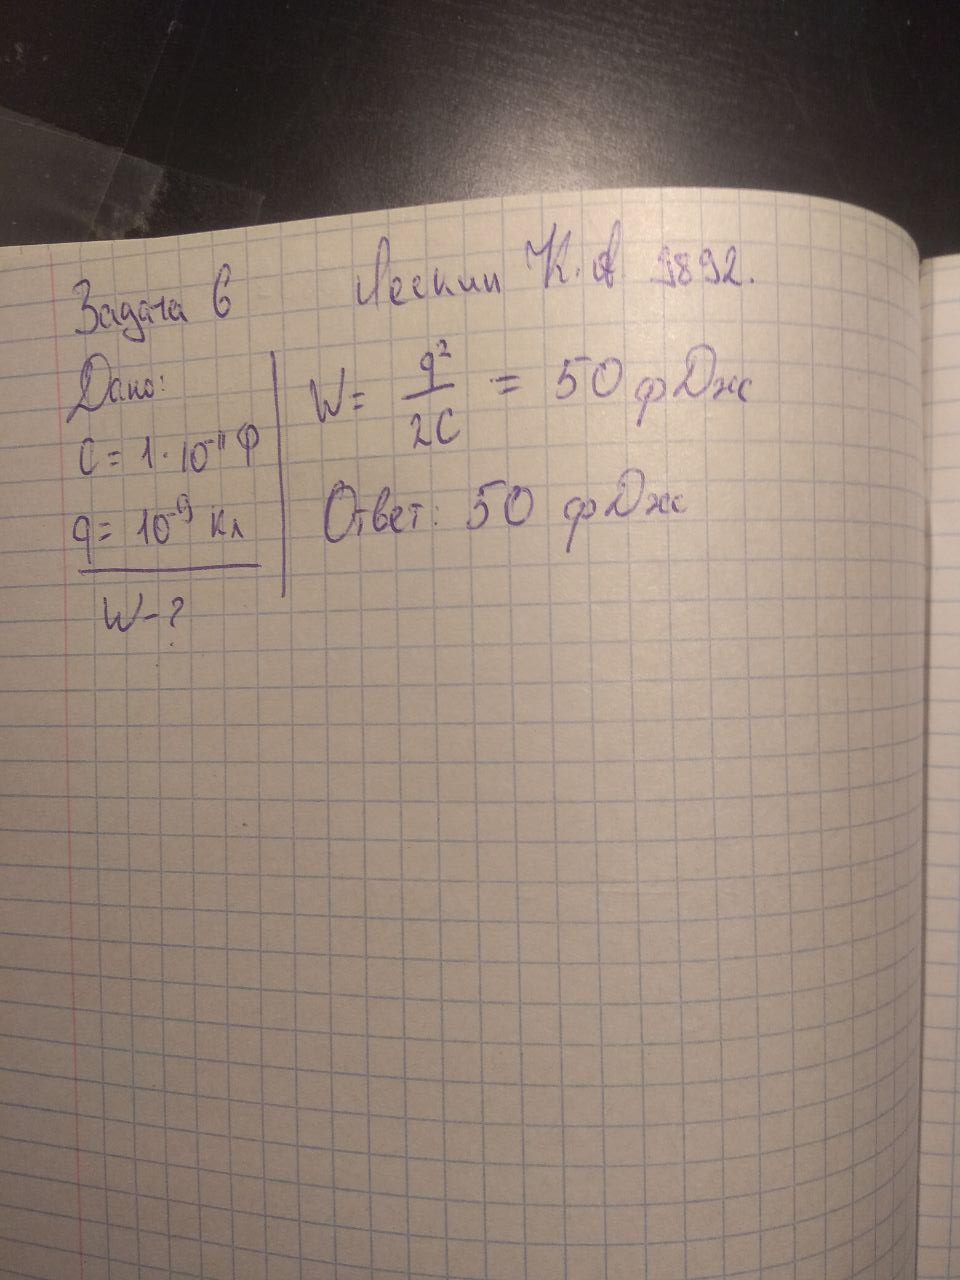 Задача 6 Лескин К. А 9892.
Дано:
C = 1 · 10⁻¹¹ Ф
q = 10⁻⁹ Кл
W - ?
W = q²/2C = 50 фДж
Ответ: 50 фДж